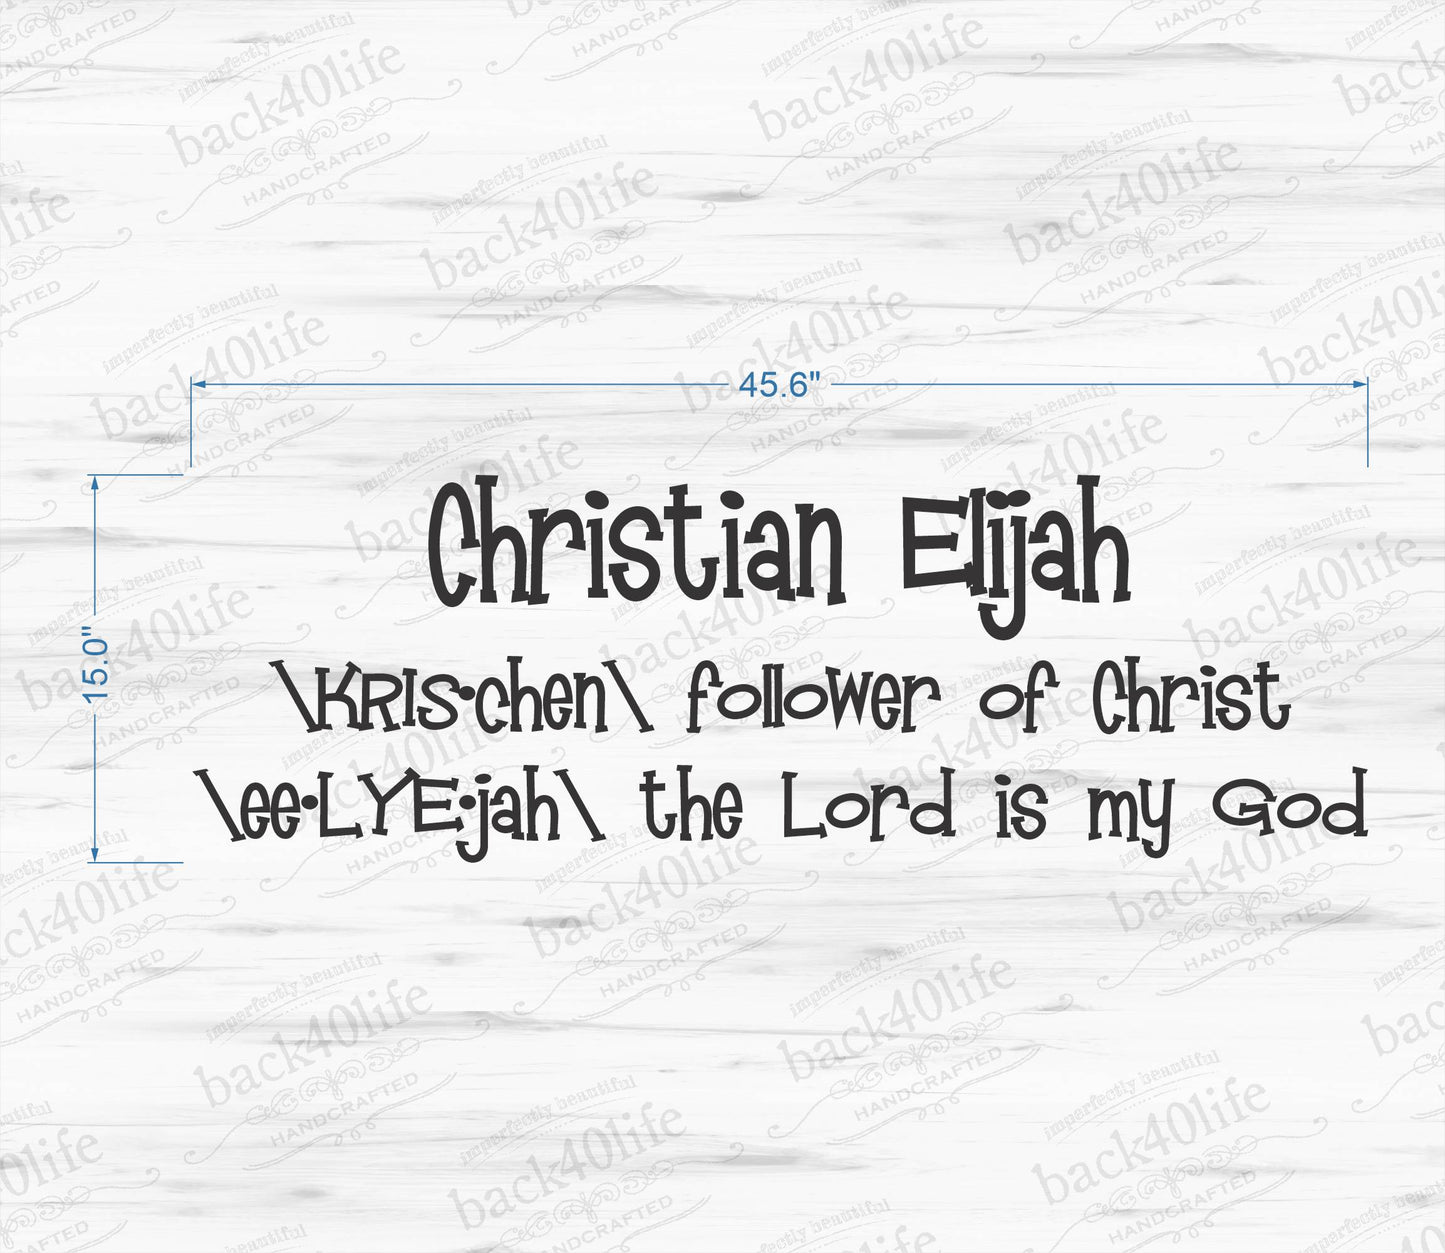 45.6"
15.0"
Christian Elijah
\KRIS•chen\ follower of Christ
\ee•LYE•jah\ the Lord is my God
imperfectly beautiful
back40life
HANDCRAFTED